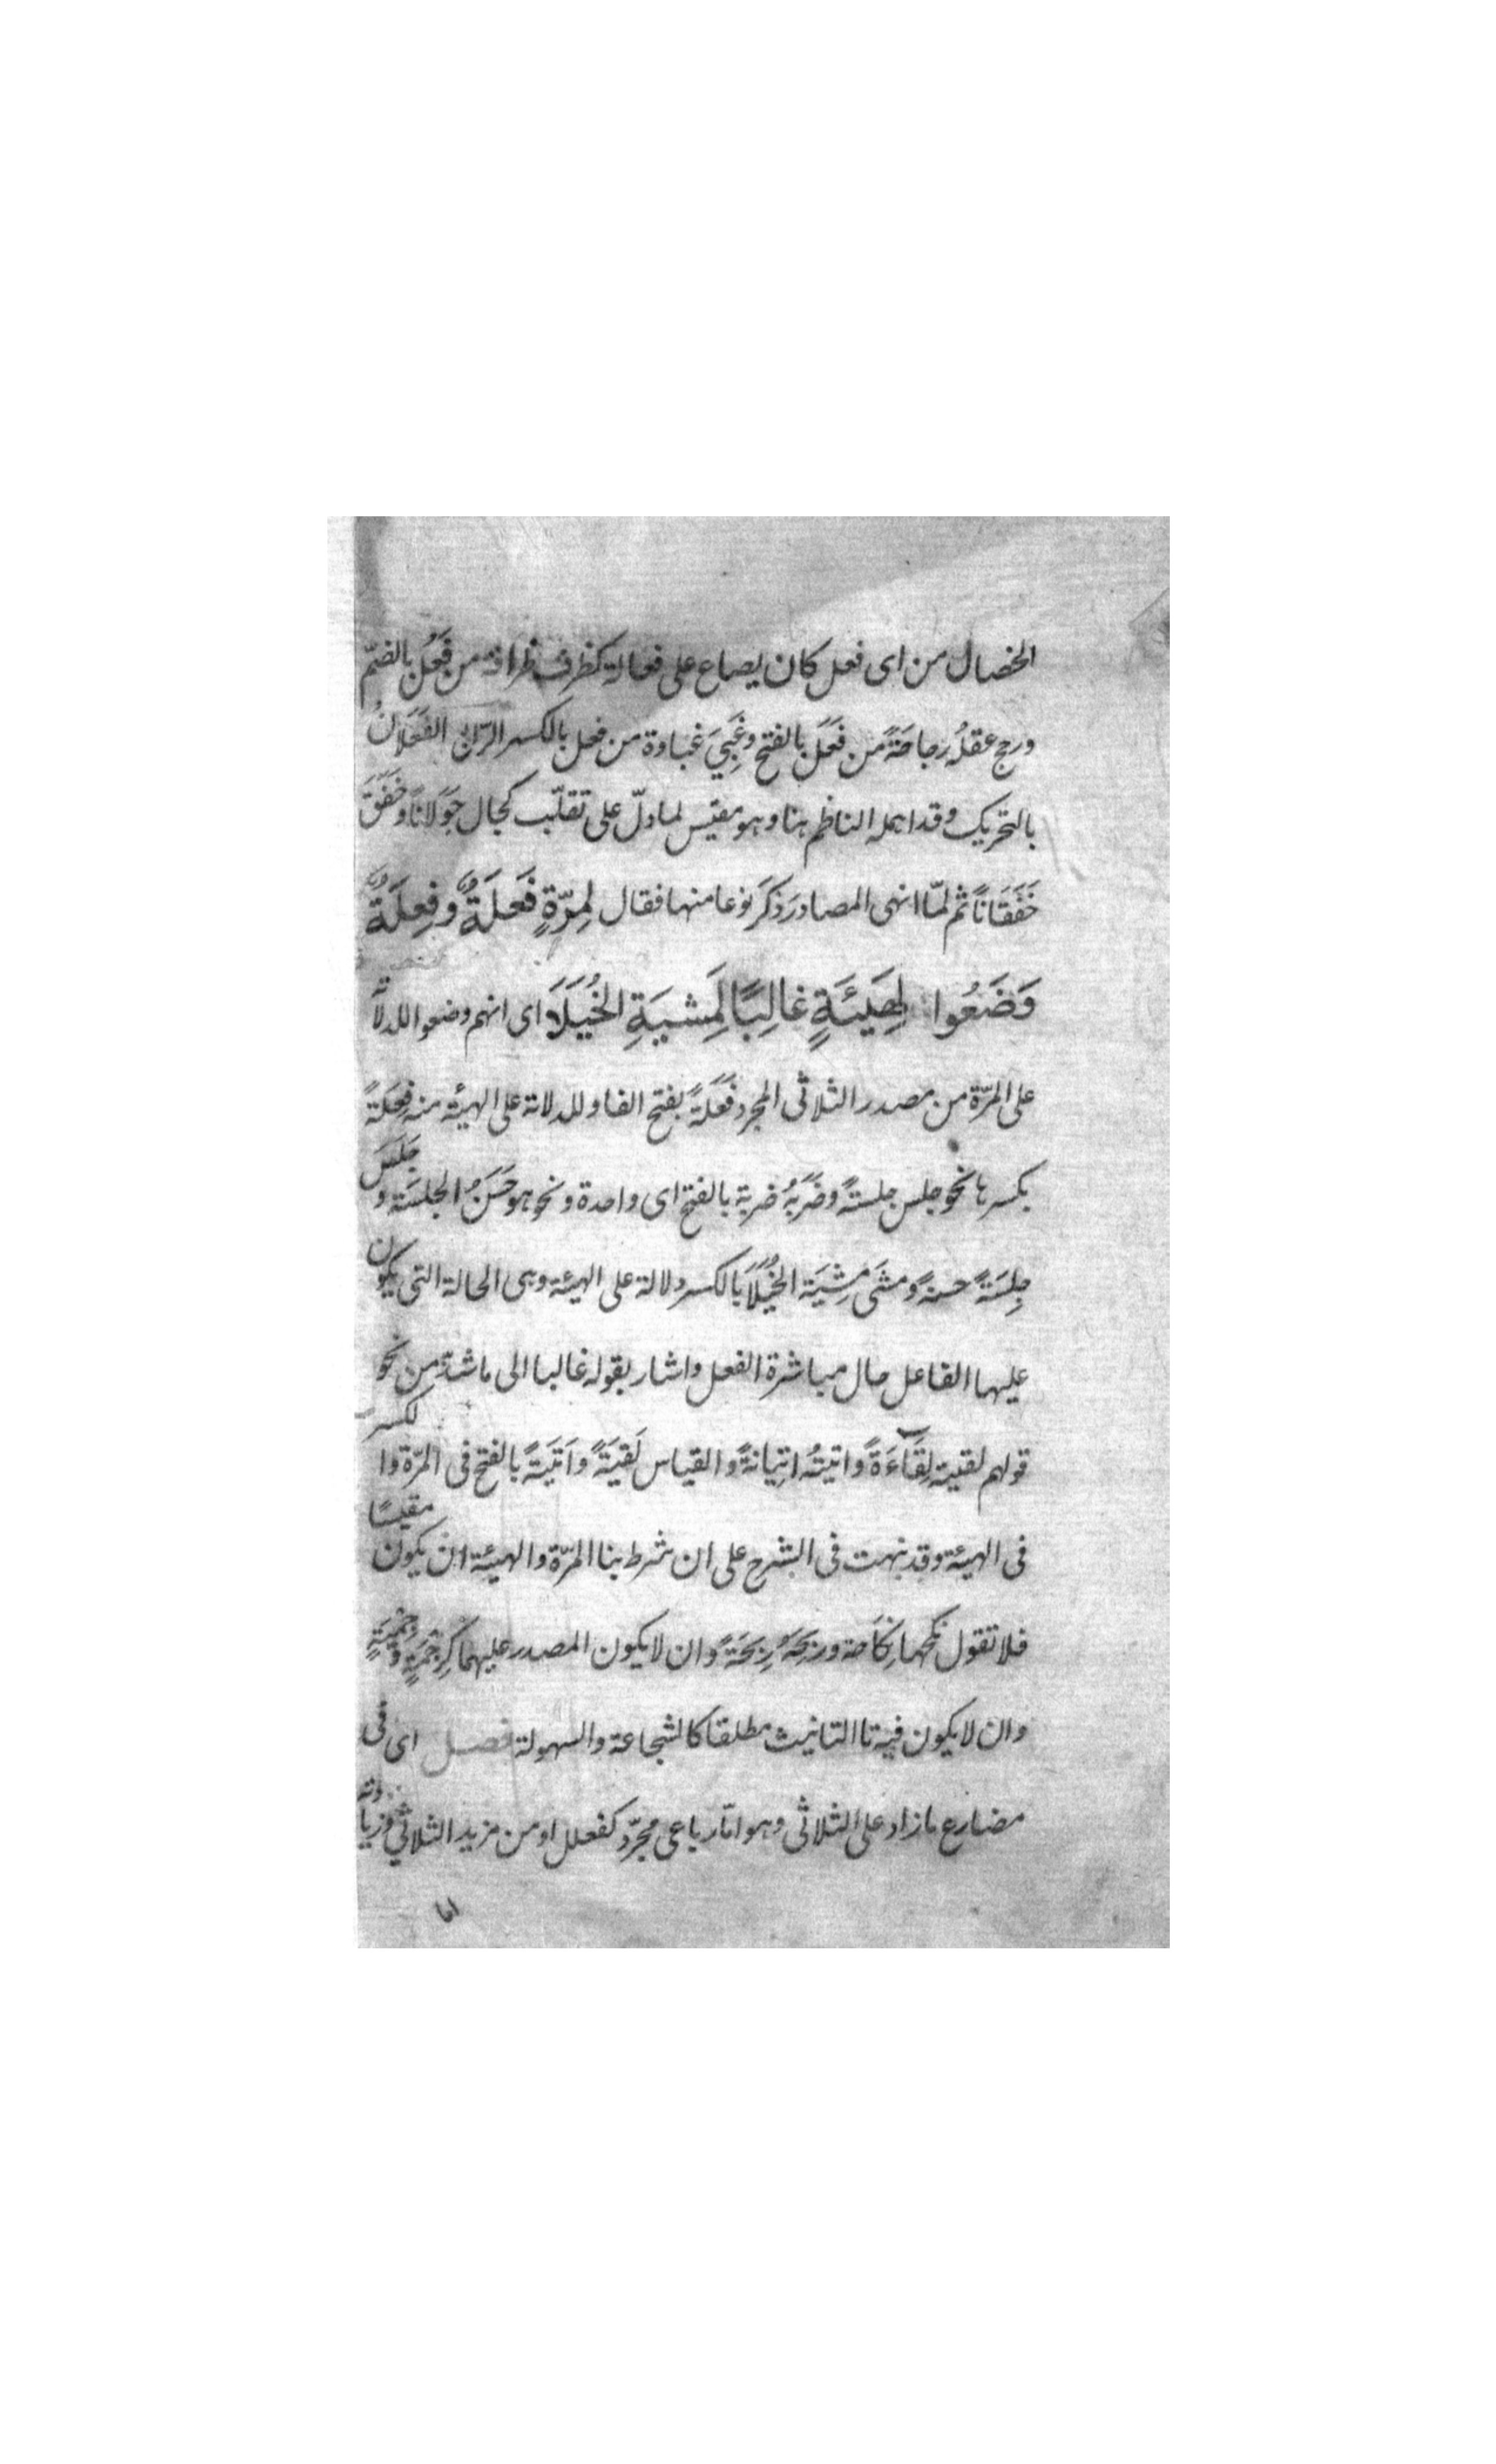 الخصال من اى فعل كان يصاع على فعالة كظرف ظرافة من فَعُل بالضمّ
ورجح عقلُه رجاحَةً من فَعَل بالفتح وغَبِيَ غباوة من فعل بالكسر الرّابع الفَعَلَانُ
بالتحريك وقد اهمله الناظم هنا وهو مقيس لما دلّ على تقلّب كجال جَوَلانًا وخَفَقَ
خَفَقَانًا ثم لمّا انهى المصادر ذكَرَ نوعا منها فقال لِمرّةٍ فَعلَةٌ وفِعلَةٌ
وَضَعُوا لِهَيئَةٍ غالِبًا كَمِشيَةِ الخُيَلَا اى انهم وضعوا للدلالة
على المرّة من مصدر الثلاثى المجرد فَعَلَةً بفتح الفا وللدلالة على الهيئة منه فِعلَةً
بكسرها نحو جلس جلسةً وضَرَبَهُ ضربة بالفتح اى واحدة ونحو هو حَسَنُ الجِلسَة و جَلَسَ
جِلسَةً حسنةً ومشَى مِشيَة الخُيَلَا بالكسر دلالة على الهيئة وهى الحالة التى يكون
عليها الفاعل حال مباشرة الفعل واشار بقوله غالبا الى ما شذّ من نحو
قولهم لقيته لِقَاءَةً واتيتهُ اتِيانةً والقياس لَقيَةً واَتيَةً بالفتح فى المرّة والكسر
فى الهيئة وقد نبهت فى الشرح على ان شرط بنا المرّة والهيئة ان يكون مقيسًا
فلا تقول نكحها نِكَاحة ورَبحَهُ رِبحَةً وان لا يكون المصدر عليهما كرحْمَةٍ وحِميَةٍ
وان لا يكون فيه تا التانيث مطلقا كالشجاعة والسهولة فصل اى فى
مضارع ما زاد على الثلاثى وهو امّا رباعى مجرّد كفعلل او من مزيد الثلاثى وزيادته
اما